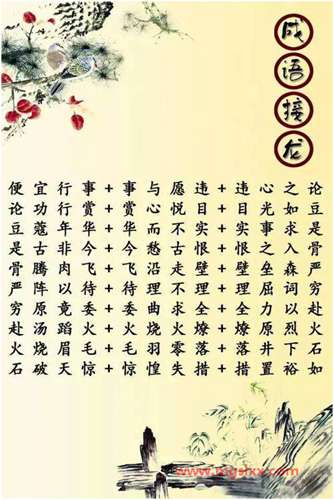 成语接龙
便宜行事+事与愿违+违心之论
论功行赏+赏心悦目+目光如豆
豆蔻年华+华而不实+实事求是
是古非今+今愁古恨+恨之入骨
骨腾肉飞+飞沿走壁+壁垒森严
严阵以待+待理不理+理屈词穷
穷原竟委+委曲求全+全力以赴
赴汤蹈火+火烧火燎+燎原烈火
火烧眉毛+毛羽零落+落井下石
石破天惊+惊惶失措+措置裕如
www.mgslxx.com